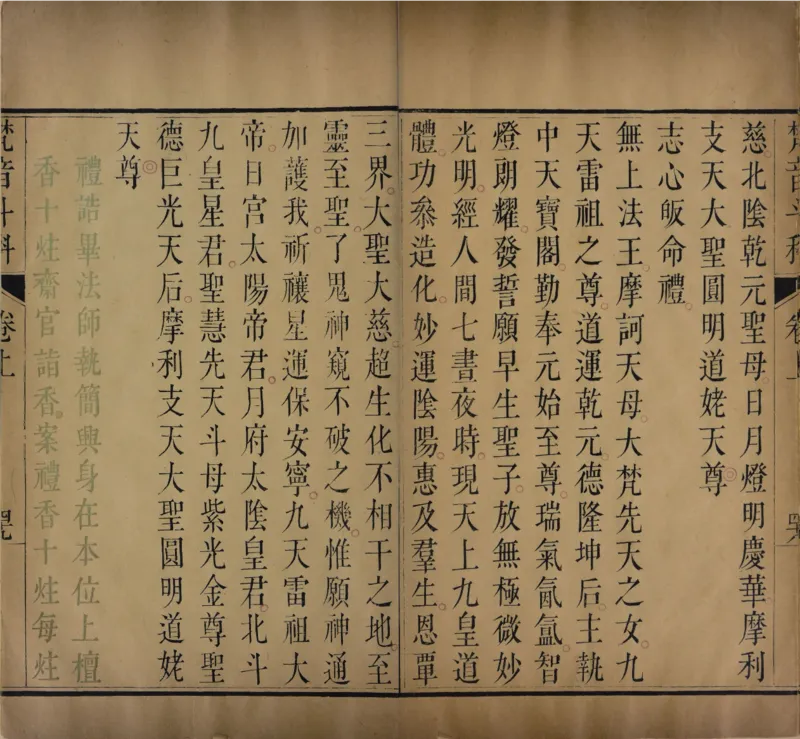 梵音斗科 卷上
慈。北陰乾元聖母日月燈明慶華摩利
支天大聖圓明道姥天尊。
志心皈命禮。
無上法王摩訶天母大梵先天之女。九
天雷祖之尊。道運乾元。德隆坤后。主執
中天寶閣。勤奉元始至尊。瑞氣氤氳。智
燈朗耀。發誓願早生聖子。放無極微妙
光明。經人間七晝夜時。現天上九皇道
體。功叅造化。妙運陰陽。惠及羣生。恩覃
三界。大聖大慈。超生化不相干之地。至
靈至聖。了鬼神窺不破之機。惟願神通
加護我。祈禳星運保安寧。九天雷祖大
帝。日宮太陽帝君。月府太陰皇君。北斗
九皇星君。聖慧先天斗母紫光金尊聖
德巨光天后。摩利支天大聖圓明道姥
天尊。
禮誥畢法師執簡興身在本位上檀
香十炷齋官詣香案禮香十炷每炷
梵音斗科 卷上